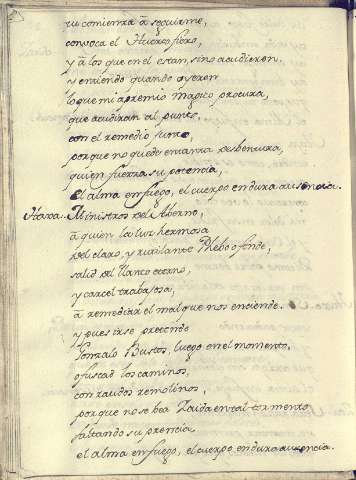 tu comienza â seguirme,
convoca el Huerco fiero,
y â los que en el estan, sino acudieren,
y entiendo quando oyeren
lo que mi apremio magico procura,
que acudiran al punto,
con el remedio junto,
porque no quede en tanta desbentura,
quien fuerza su potencia,
El alma en fuego, el cuerpo en dura ausencia.
Haxa. Ministros del Aberno,
â quien la luz hermosa
del claro, y rutilante Phebo ofende,
salid del llanto eterno,
y carcel trabajosa,
â remediar el mal que nos enciende.
y pues irse pretende
Gonzalo Bustos, luego en el momento,
ofuscad los caminos,
con raudos remolinos,
porque no se bea Zaida en tal tormento
faltando su prencia
el alma en fuego, el cuerpo en dura ausencia.